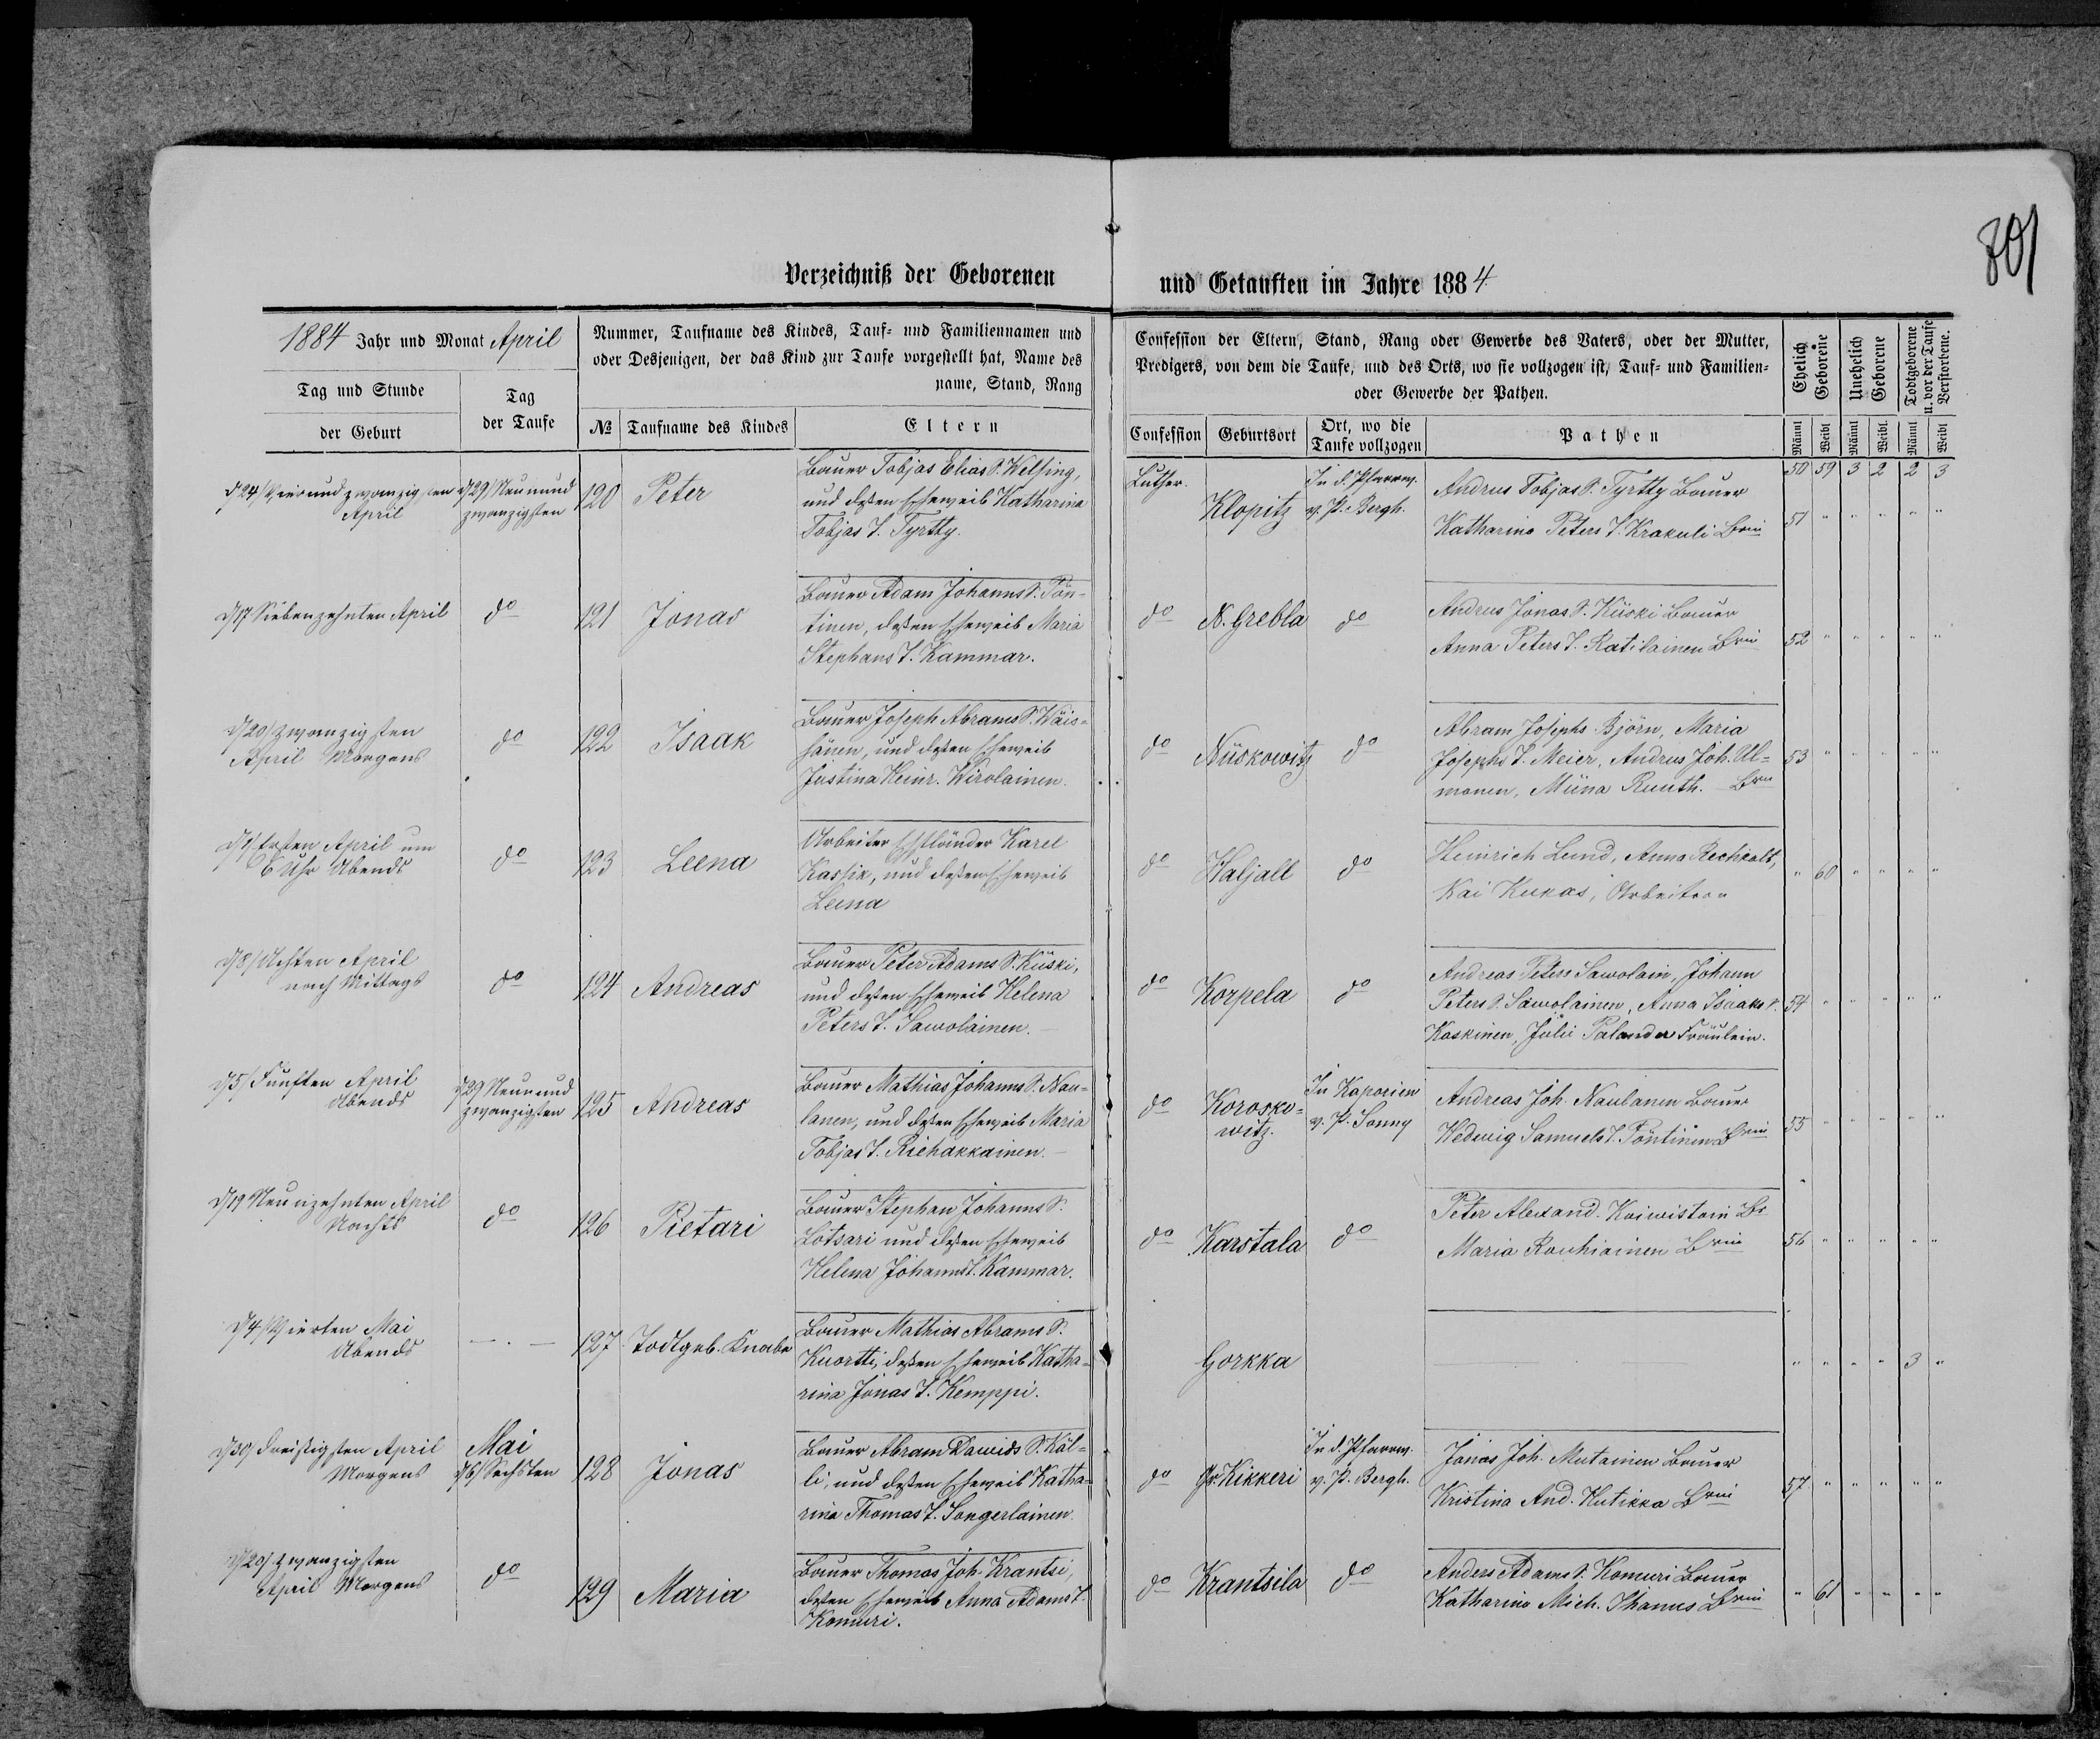 801
Verzeichniß der Geborenen und Getauften im Jahre 1884
1884 Jahr und Monat April
Tag und Stunde
der Geburt
Tag
der Taufe
Nummer, Taufname des Kindes, Tauf- und Familiennamen und
oder Desjenigen, der das Kind zur Taufe vorgestellt hat, Name des
name, Stand, Rang
№ Taufname des Kindes Eltern
Confession der Eltern, Stand, Rang oder Gewerbe des Vaters, oder der Mutter,
Predigers, von dem die Taufe, und des Orts, wo sie vollzogen ist, Tauf- und Familien-
oder Gewerbe der Pathen.
Confession Geburtsort Ort, wo die
Taufe vollzogen
Pathen
Ehelich
Geborene
Unehelich
Geborene
Todtgeborene
u. vor der Taufe
Verstorbene.
Männl Weibl Männl Weibl. Männl Weibl
50 59 3 2 2 3
d/24/ Vierundzwanzigsten
April
d/29/ Neunund
zwanzigsten
120 Peter
Bauer Tobjas Elias S. Welsing,
und deßen Eheweib Katharina
Tobjas T. Tyrtty.
Luther.
Klopitz
In d. Pfarrw.
v. P. Bergh.
Andrus Tobjas S. Tyrtty Bauer
Katharina Peters T. Krakuli Brin
51 " " " " "
d/17 Siebenzehnten April
do
121 Jonas
Bauer Adam Johanns S. Pön-
tinen, deßen Eheweib Maria
Stephans T. Kammar.
do N. Grebla do
Andrus Jonas S. Küski Bauer
Anna Peters T. Ratilainen Brin
52 " " " " "
d/20/ Zwanzigsten
April Morgens
do
122 Isaak
Bauer Joseph Abrams S. Wäis-
hänen, und deßen Eheweib
Justina Heinr. Wirolainen.
do Nüskowitz do
Abram Josephs Björn, Maria
Josephs T. Meier, Andrus Joh. Ul-
manen, Miina Ruuth. Brn
53 " " " " "
d/1/ Ersten April um
6 Uhr Abends
do
123 Leena
Arbeiter Esthländer Karel
Kassik, und deßen Eheweib
Leena
do Haljall do
Heinrich Lund, Anna Rechkalt,
Kai Kukas, Arbeiter
" 60 " " " "
d/8/ Achten April
nach Mittags
do
124 Andreas
Bauer Peter Adams S. Küski,
und deßen Eheweib Helena
Peters T. Sawolainen.
do Korpela do
Andreas Peters Sawolain, Johann
Peters S. Sawolainen, Anna Isaaks T.
Kaskinen, Julie Palander Fräulein.
54 " " " " "
d/5/ Fünften April
Abends
d/29 Neunund
zwanzigsten
125 Andreas
Bauer Mathias Johanns S. Nau-
lanen, und deßen Eheweib Maria
Tobjas T. Riehakkainen.
do Korosko-
witz.
In Kaporien
v. P. Sonny
Andreas Joh. Naulanen Bauer
Hedwig Samuels T. Pöntinen Brin
55 " " " " "
d/19 Neunzehnten April
Nachts
do
126 Pietari
Bauer Stephan Johanns S.
Lotsari und deßen Eheweib
Helena Johanns T. Kammar.
do Karstala do
Peter Alexand. Koiwistoin Br
Maria Rouhiainen Brin
56 " " " " "
d/4/ Vierten Mai
Abends
— . —
127 Todtgeb. Knabe
Bauer Mathias Abrams S.
Kuortti, deßen Eheweib Katha-
rina Jonas T. Kemppi.
Gorkka
" " " " 3 "
d/30/ Dreißigsten April
Morgens
Mai
d/6/ Sechsten
128 Jonas
Bauer Abram Dawids S. Käl-
li, und deßen Eheweib Katha-
rina Thomas T. Songerlainen.
do Gr. Kikkeri
In d. Pfarrw.
v. P. Bergh.
Jonas Joh. Mutainen Bauer
Kristina And. Hutikka Brin
57 " " " " "
d/20/ Zwanzigsten
April Morgens
do
129 Maria
Bauer Thomas Joh. Krantsi,
deßen Eheweib Anna Adams T.
Komuri.
do Krantsila do
Anders Adams S. Komuri Bauer
Katharina Mich. Ihanus Brin
" 61 " " " "